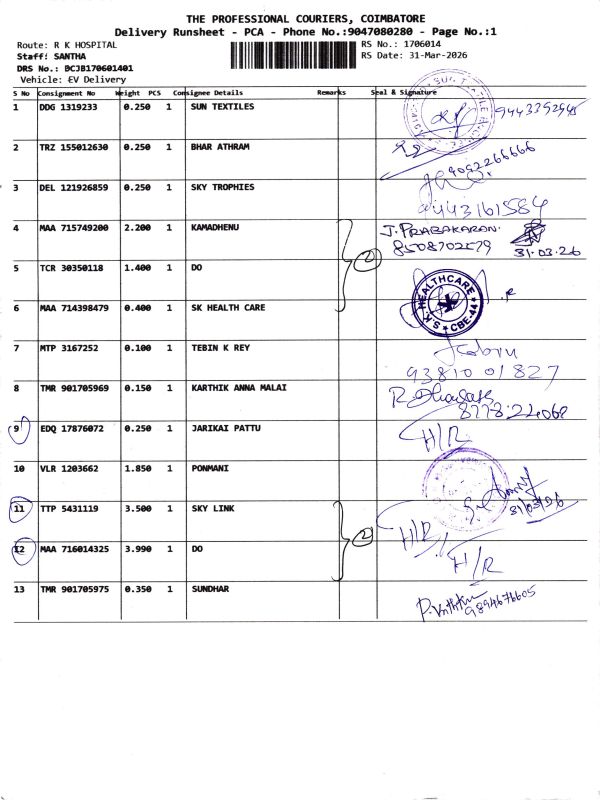 THE PROFESSIONAL COURIERS, COIMBATORE
Delivery Runsheet - PCA - Phone No.:9047080280 - Page No.:1
Route: R K HOSPITAL
RS No.: 1706014
Staff: SANTHA
RS Date: 31-Mar-2026
DRS No.: BCJB170601401
Vehicle: EV Delivery
S No Consignment No Weight PCS Consignee Details Remarks Seal & Signature
1 DDG 1319233 0.250 1 SUN TEXTILES
2 TRZ 155012630 0.250 1 BHAR ATHRAM 9092266666
3 DEL 121926859 0.250 1 SKY TROPHIES 9443161584
4 MAA 715749200 2.200 1 KAMADHENU J. PRABAKARAN.
31.03.26
5 TCR 30350118 1.400 1 DO
2
6 MAA 714398479 0.400 1 SK HEALTH CARE S.K HEALTHCARE CBE-44
7 MTP 3167252 0.100 1 TEBIN K REY
93810 01827
8 TMR 901705969 0.150 1 KARTHIK ANNA MALAI
9 EDQ 17876072 0.250 1 JARIKAI PATTU H/R
10 VLR 1203662 1.850 1 PONMANI
11 TTP 5431119 3.500 1 SKY LINK H/R
2
12 MAA 716014325 3.990 1 DO H/R
13 TMR 901705975 0.350 1 SUNDHAR
9894676605